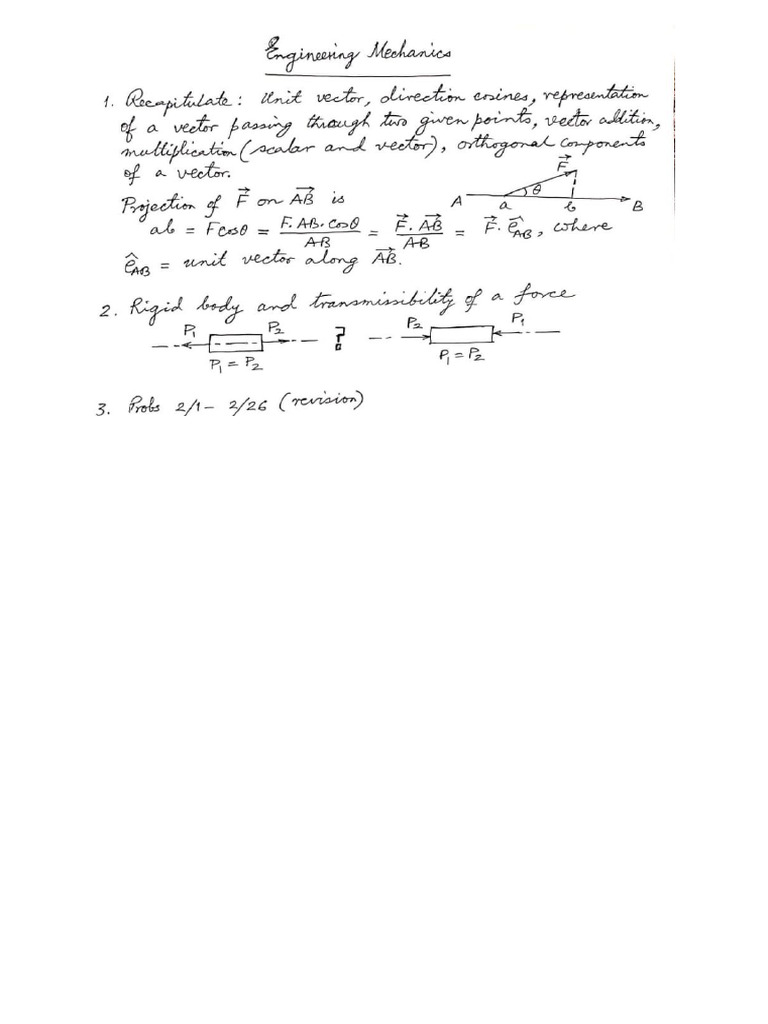 Engineering Mechanics
1. Recapitulate: Unit vector, direction cosines, representation
of a vector passing through two given points, vector addition,
multiplication (scalar and vector), orthogonal components
of a vector.
F⃗
θ
A a b B
Projection of F⃗ on AB⃗ is
ab = Fcosθ = F.AB.cosθ/AB = F⃗.AB⃗/AB = F⃗.ê_AB, where
ê_AB = unit vector along AB⃗.
2. Rigid body and transmissibility of a force
P₁ P₂ ? P₂ P₁
P₁ = P₂ P₁ = P₂
3. Probs 2/1 – 2/26 (revision)